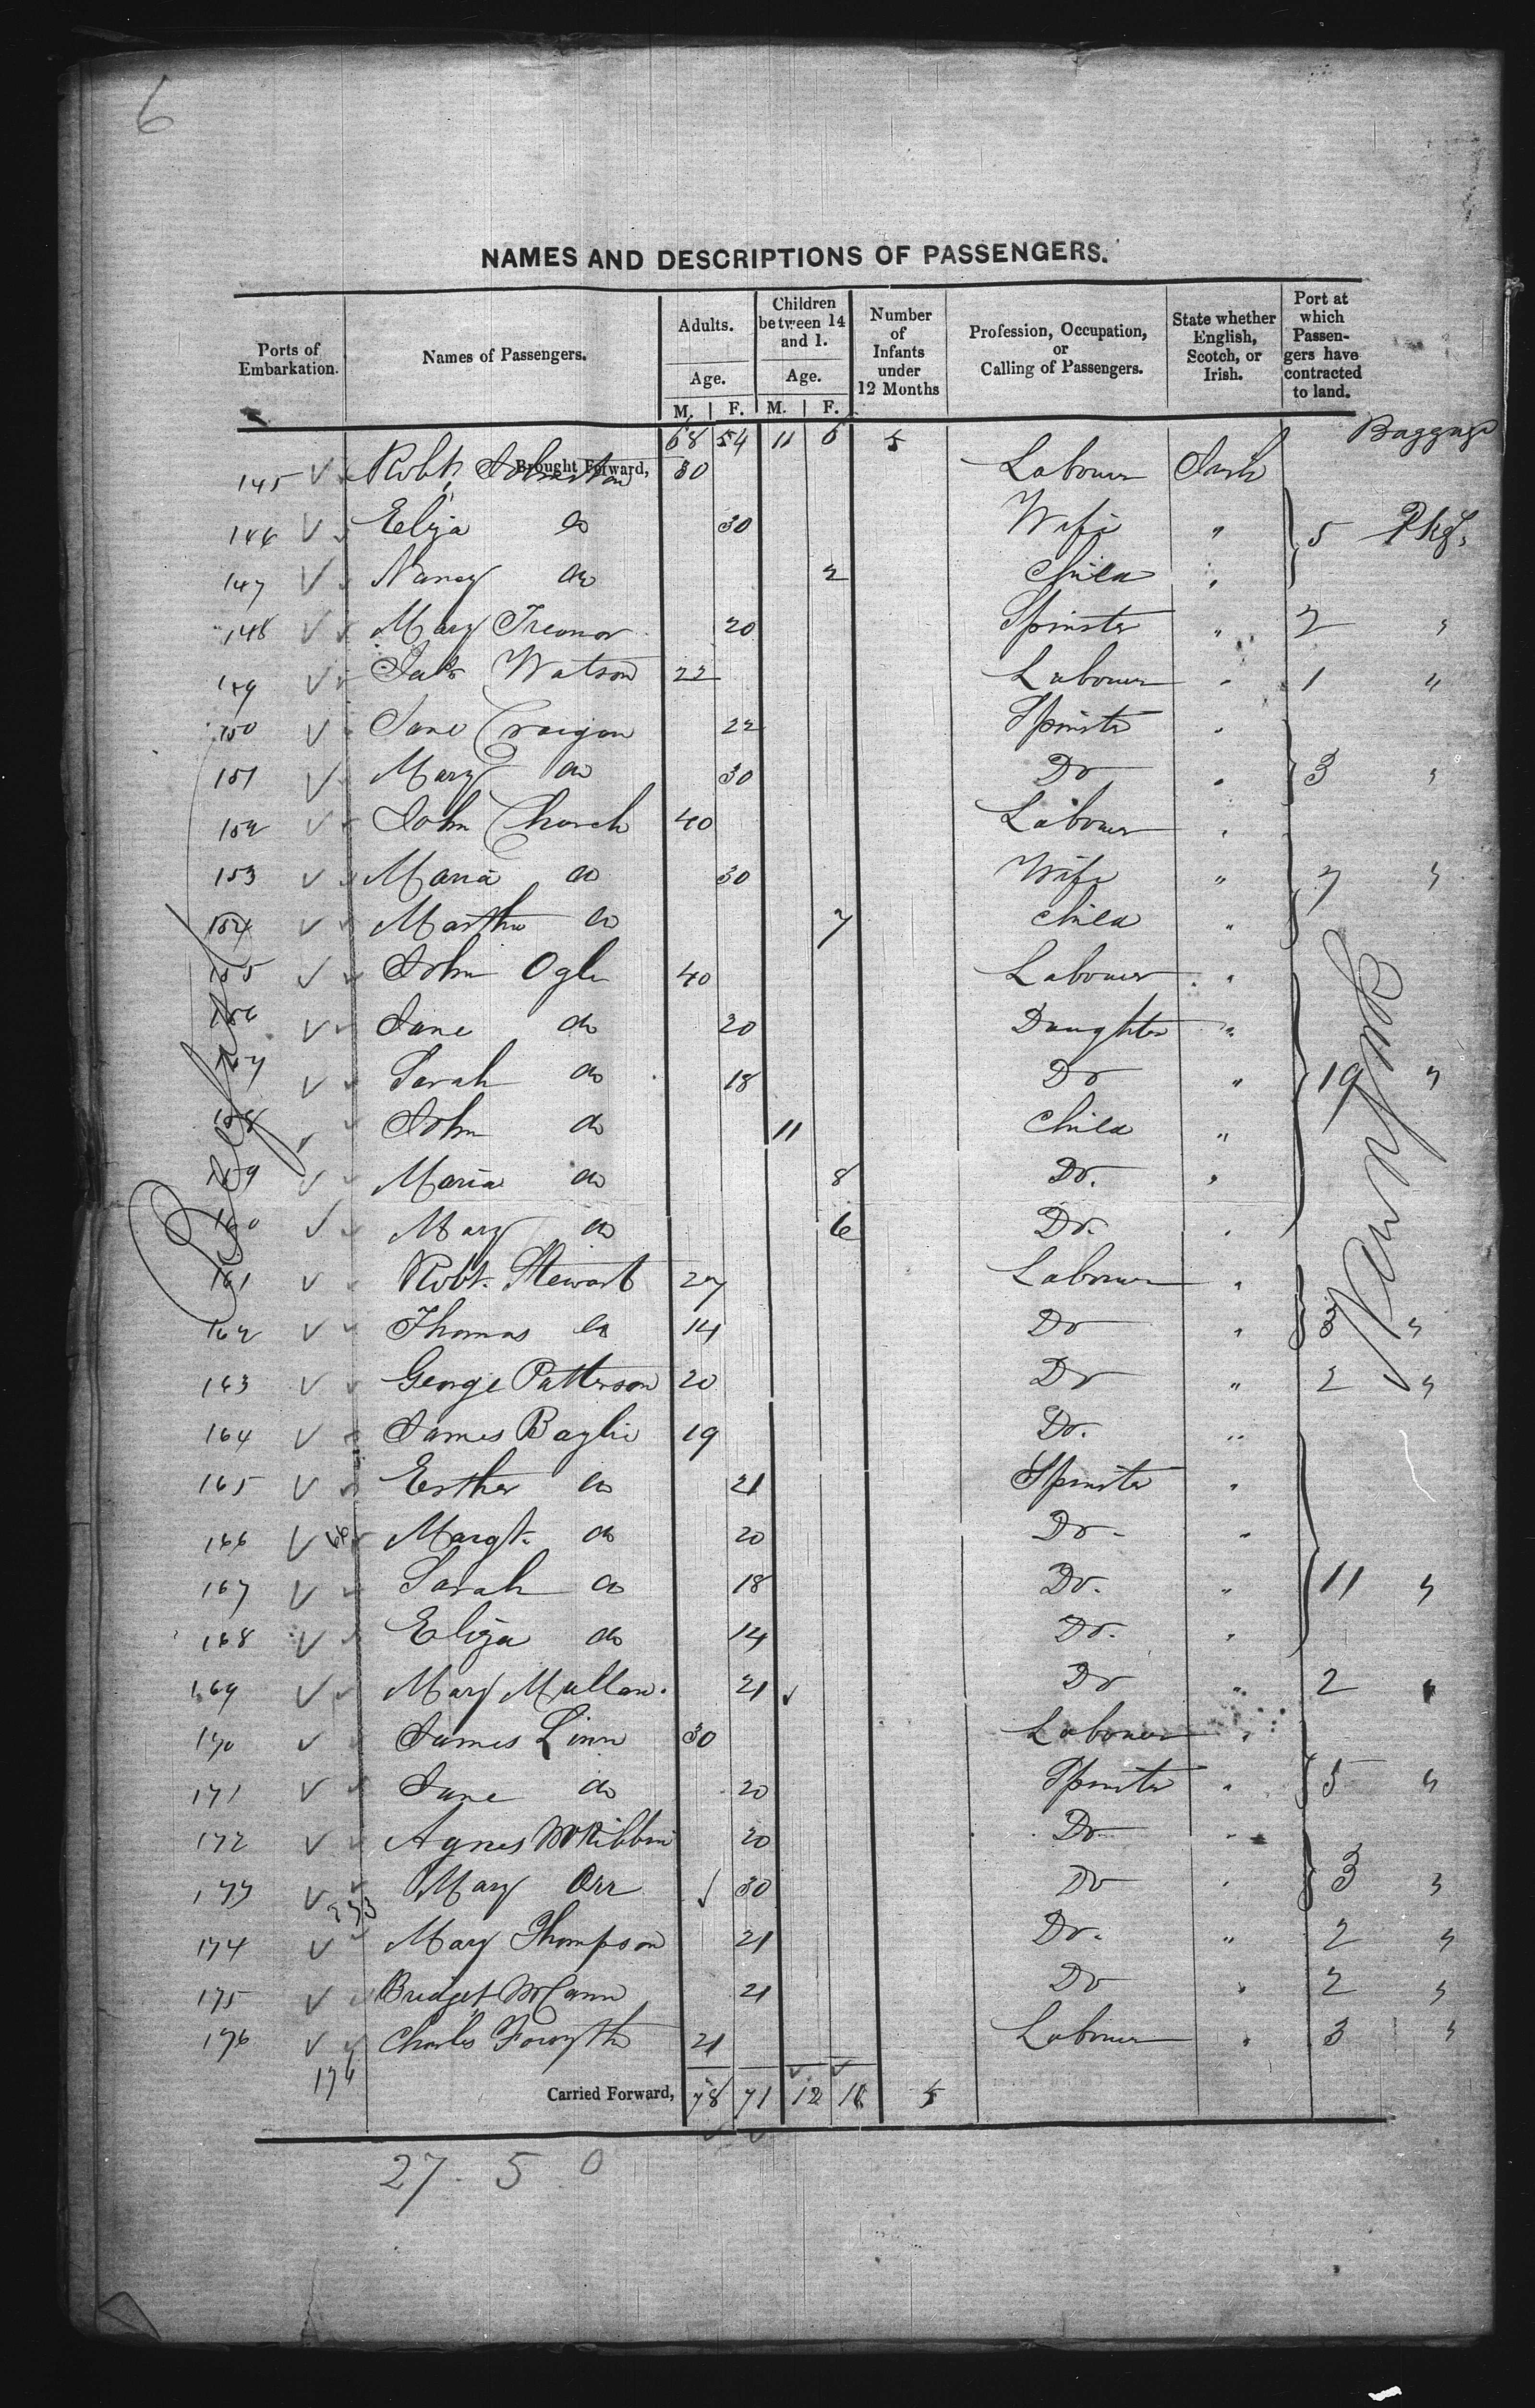 6
NAMES AND DESCRIPTIONS OF PASSENGERS.
Ports of Embarkation. Names of Passengers. Adults. Age. M. F. Children between 14 and 1. Age. M. F. Number of Infants under 12 Months Profession, Occupation, or Calling of Passengers. State whether English, Scotch, or Irish. Port at which Passengers have contracted to land.
Baggage
Brought Forward, 68 54 11 6 5
145 Robt. Johnston 30 Labourer Irish
146 Eliza do 30 Wife " 5 Pkgs
147 Nancy do 2 Child "
148 Mary Treonor 20 Spinster " 2 "
149 Watson 22 Labourer " 1 "
150 Jane Craigan 22 Spinster "
151 Mary do 30 Do " 3 "
152 John Church 40 Labourer "
153 Maria do 30 Wife " 7 "
154 Martha do 7 Child "
155 John Ogle 40 Labourer "
156 Jane do 20 Daughter "
157 Sarah do 18 Do " 19 "
158 John do 11 Child "
159 Maria do 8 Do. "
160 Mary do 6 Do. "
161 Robt. Stewart 27 Labourer "
162 Thomas do 14 Do " 3 "
163 George Patterson 20 Do " 2 "
164 James Baylie 19 Do. "
165 Esther do 21 Spinster "
166 66 Margt. do 20 Do "
167 Sarah do 18 Do. " 11 "
168 Eliza do 14 Do. "
169 Mary Mullan. 21 Do " 2 "
170 James Linn 30 Labourer "
171 Jane do 20 Spinster " 5 "
172 Agnes McKibbin 20 Do "
173 Mary Orr 30 Do " 3 "
174 Mary Thompson 21 Do. " 2 "
175 Bridget McCann 21 Do " 2 "
176 Charles Forsythe 21 Labourer " 3 "
176
Carried Forward, 78 71 12 11 5
Belfast
New York
27. 5 0